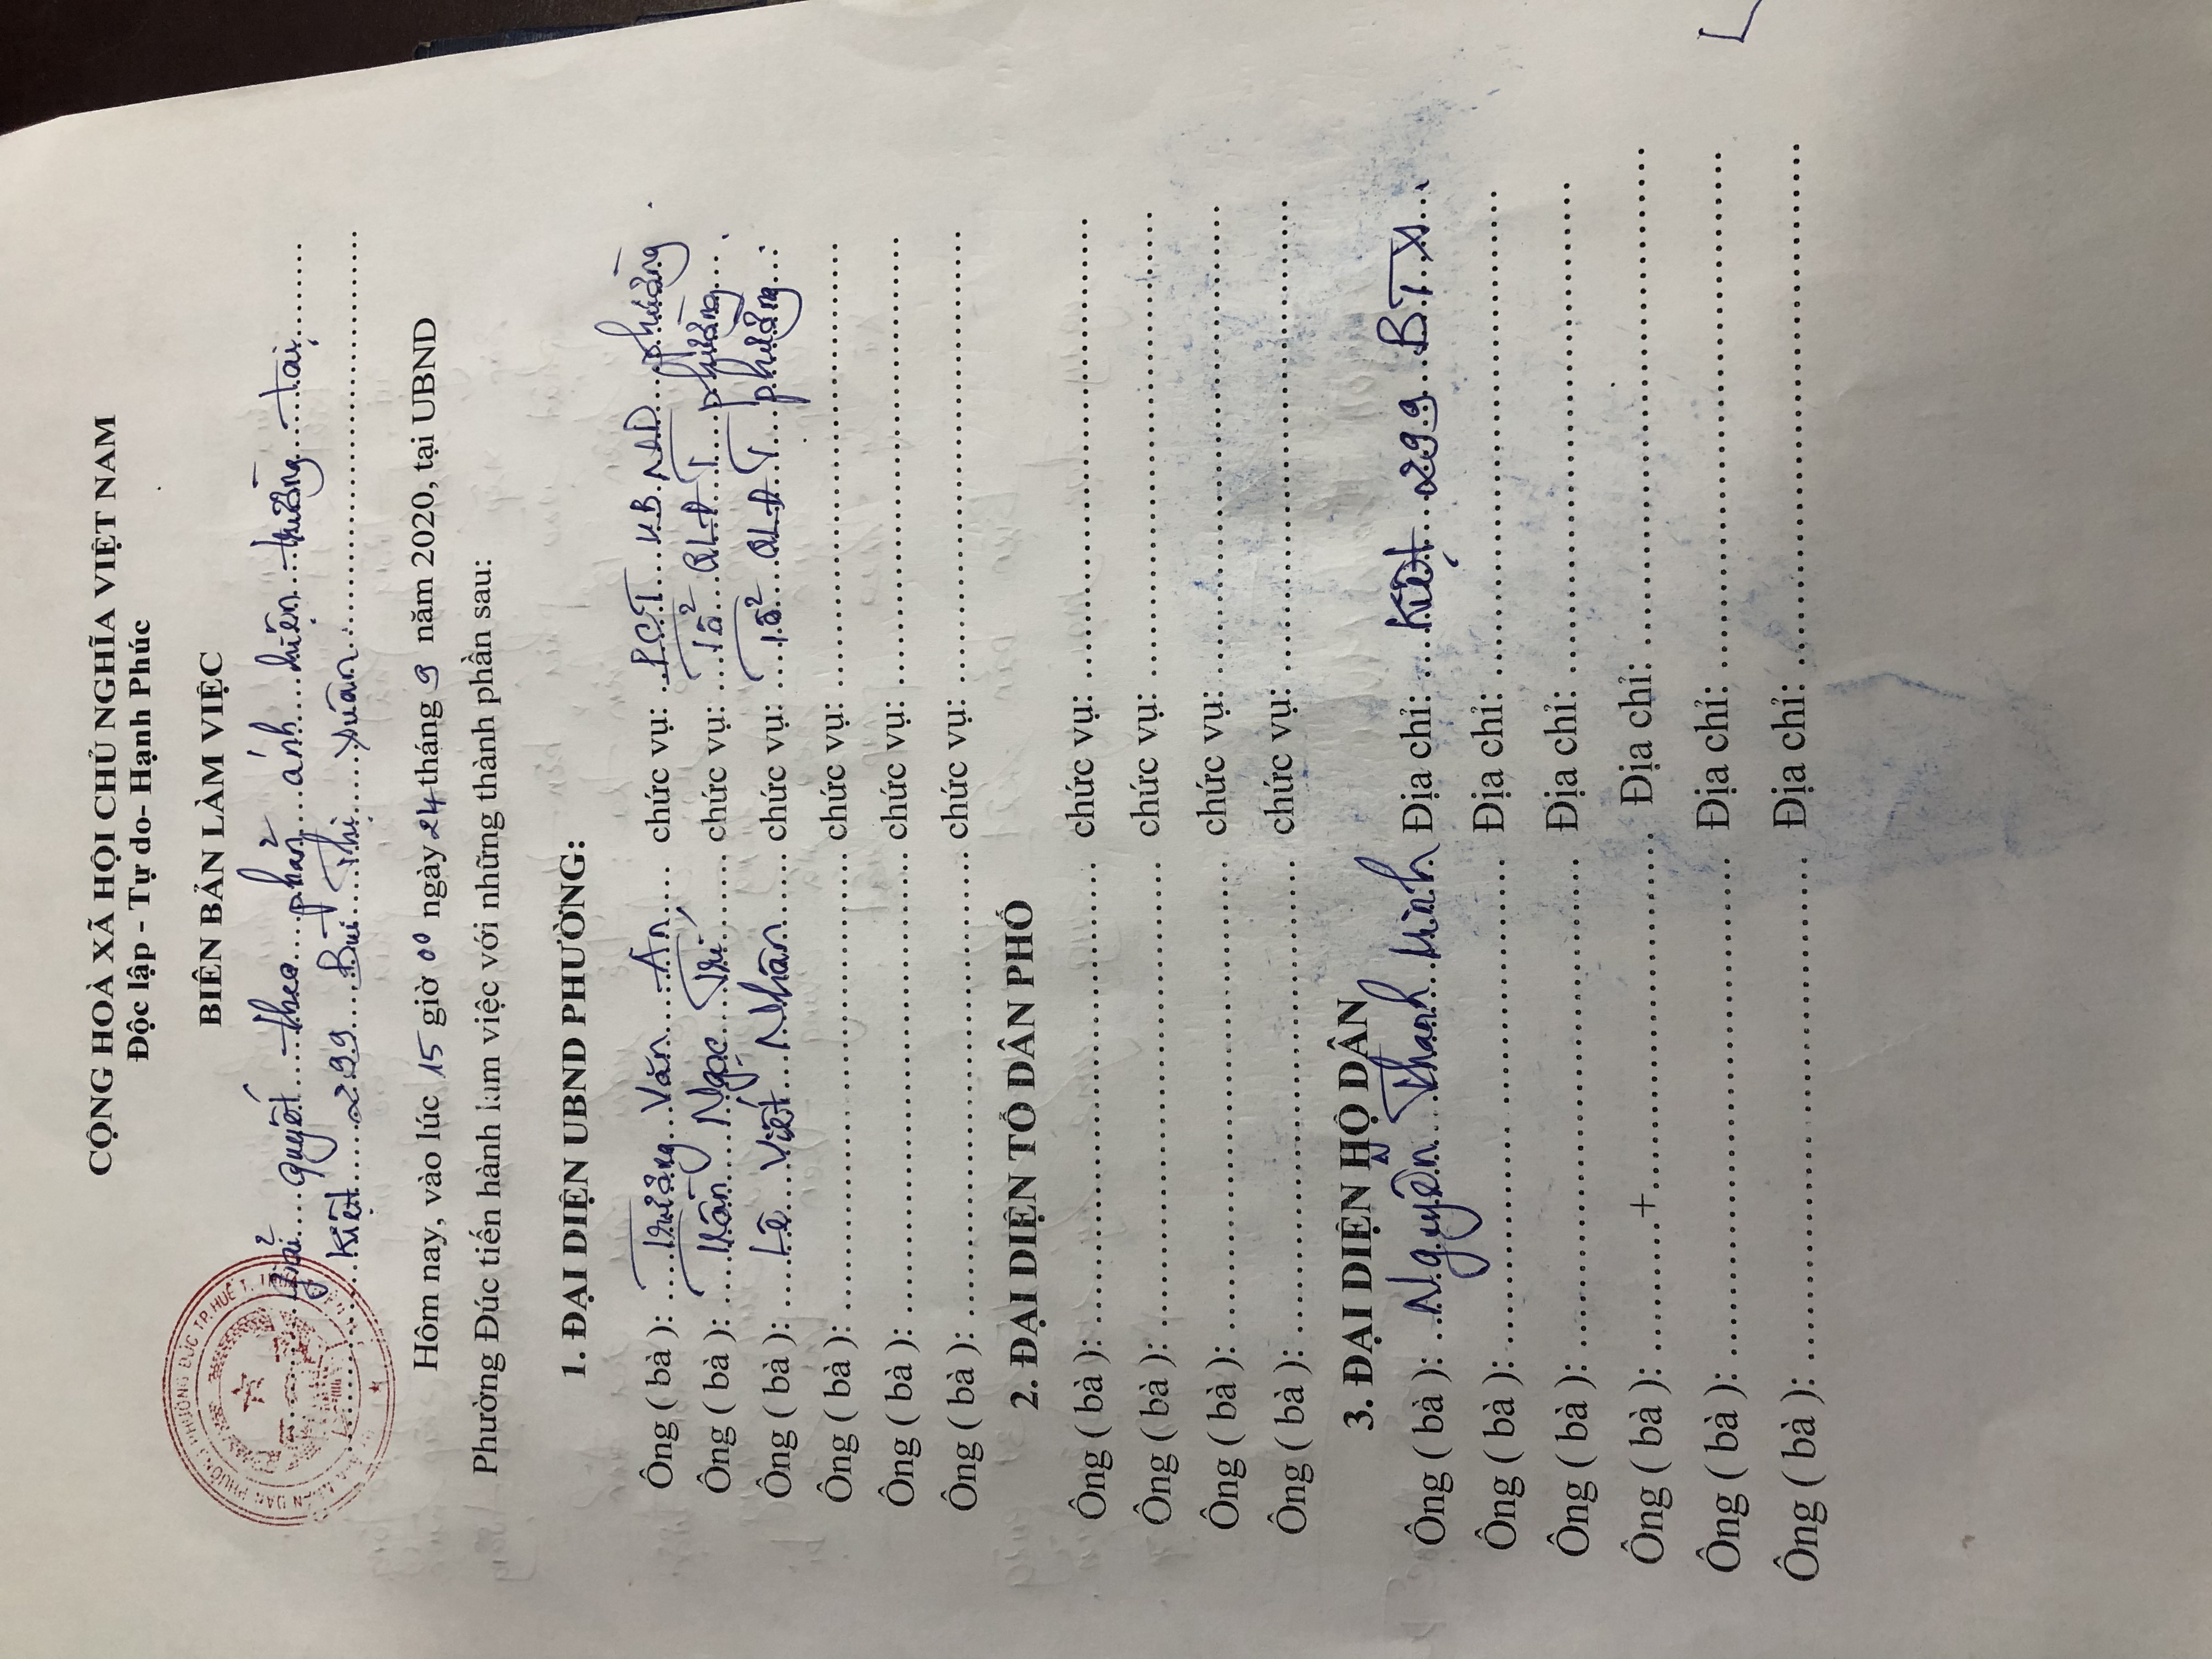 CỘNG HOÀ XÃ HỘI CHỦ NGHĨA VIỆT NAM
Độc lập - Tự do- Hạnh Phúc
BIÊN BẢN LÀM VIỆC
giải quyết theo phản ánh hiện trường tại
Kiệt 299 Bùi Thị Xuân
Hôm nay, vào lúc 15 giờ 00 ngày 24 tháng 9 năm 2020, tại UBND
Phường Đúc tiến hành làm việc với những thành phần sau:
1. ĐẠI DIỆN UBND PHƯỜNG:
Ông ( bà ): Trương Văn An chức vụ: PCT UBND phường
Ông ( bà ): Trần Ngọc Trí chức vụ: Tổ QLĐT phường
Ông ( bà ): Lê Viết Nhân chức vụ: Tổ QLĐT phường
Ông ( bà ): chức vụ:
Ông ( bà ): chức vụ:
Ông ( bà ): chức vụ:
2. ĐẠI DIỆN TỔ DÂN PHỐ
Ông ( bà ): chức vụ:
Ông ( bà ): chức vụ:
Ông ( bà ): chức vụ:
Ông ( bà ): chức vụ:
3. ĐẠI DIỆN HỘ DÂN
Ông ( bà ): Nguyễn Thanh Địa chỉ: Kiệt 299 BTX
Ông ( bà ): Địa chỉ:
Ông ( bà ): Địa chỉ:
Ông ( bà ): Địa chỉ:
Ông ( bà ): Địa chỉ:
Ông ( bà ): Địa chỉ: